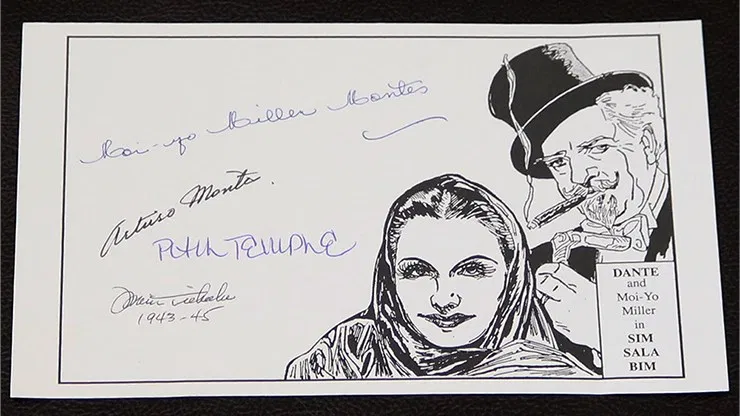 Moi-yo Miller Montes
Arturo Montes
PHIL TEMPLE
1943-45
DANTE
and
Moi-Yo
Miller
in
SIM
SALA
BIM